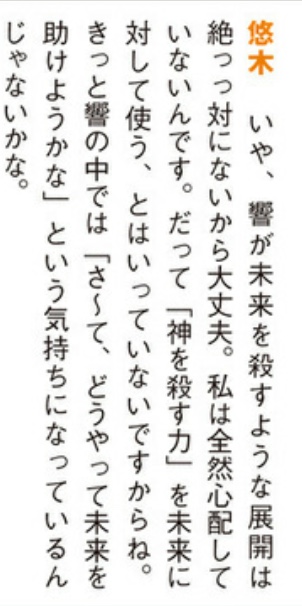 悠木　いや、響が未来を殺すような展開は
絶っっ対にないから大丈夫。私は全然心配して
いないんです。だって「神を殺す力」を未来に
対して使う、とはいっていないですからね。
きっと響の中では「さ〜て、どうやって未来を
助けようかな」という気持ちになっているん
じゃないかな。